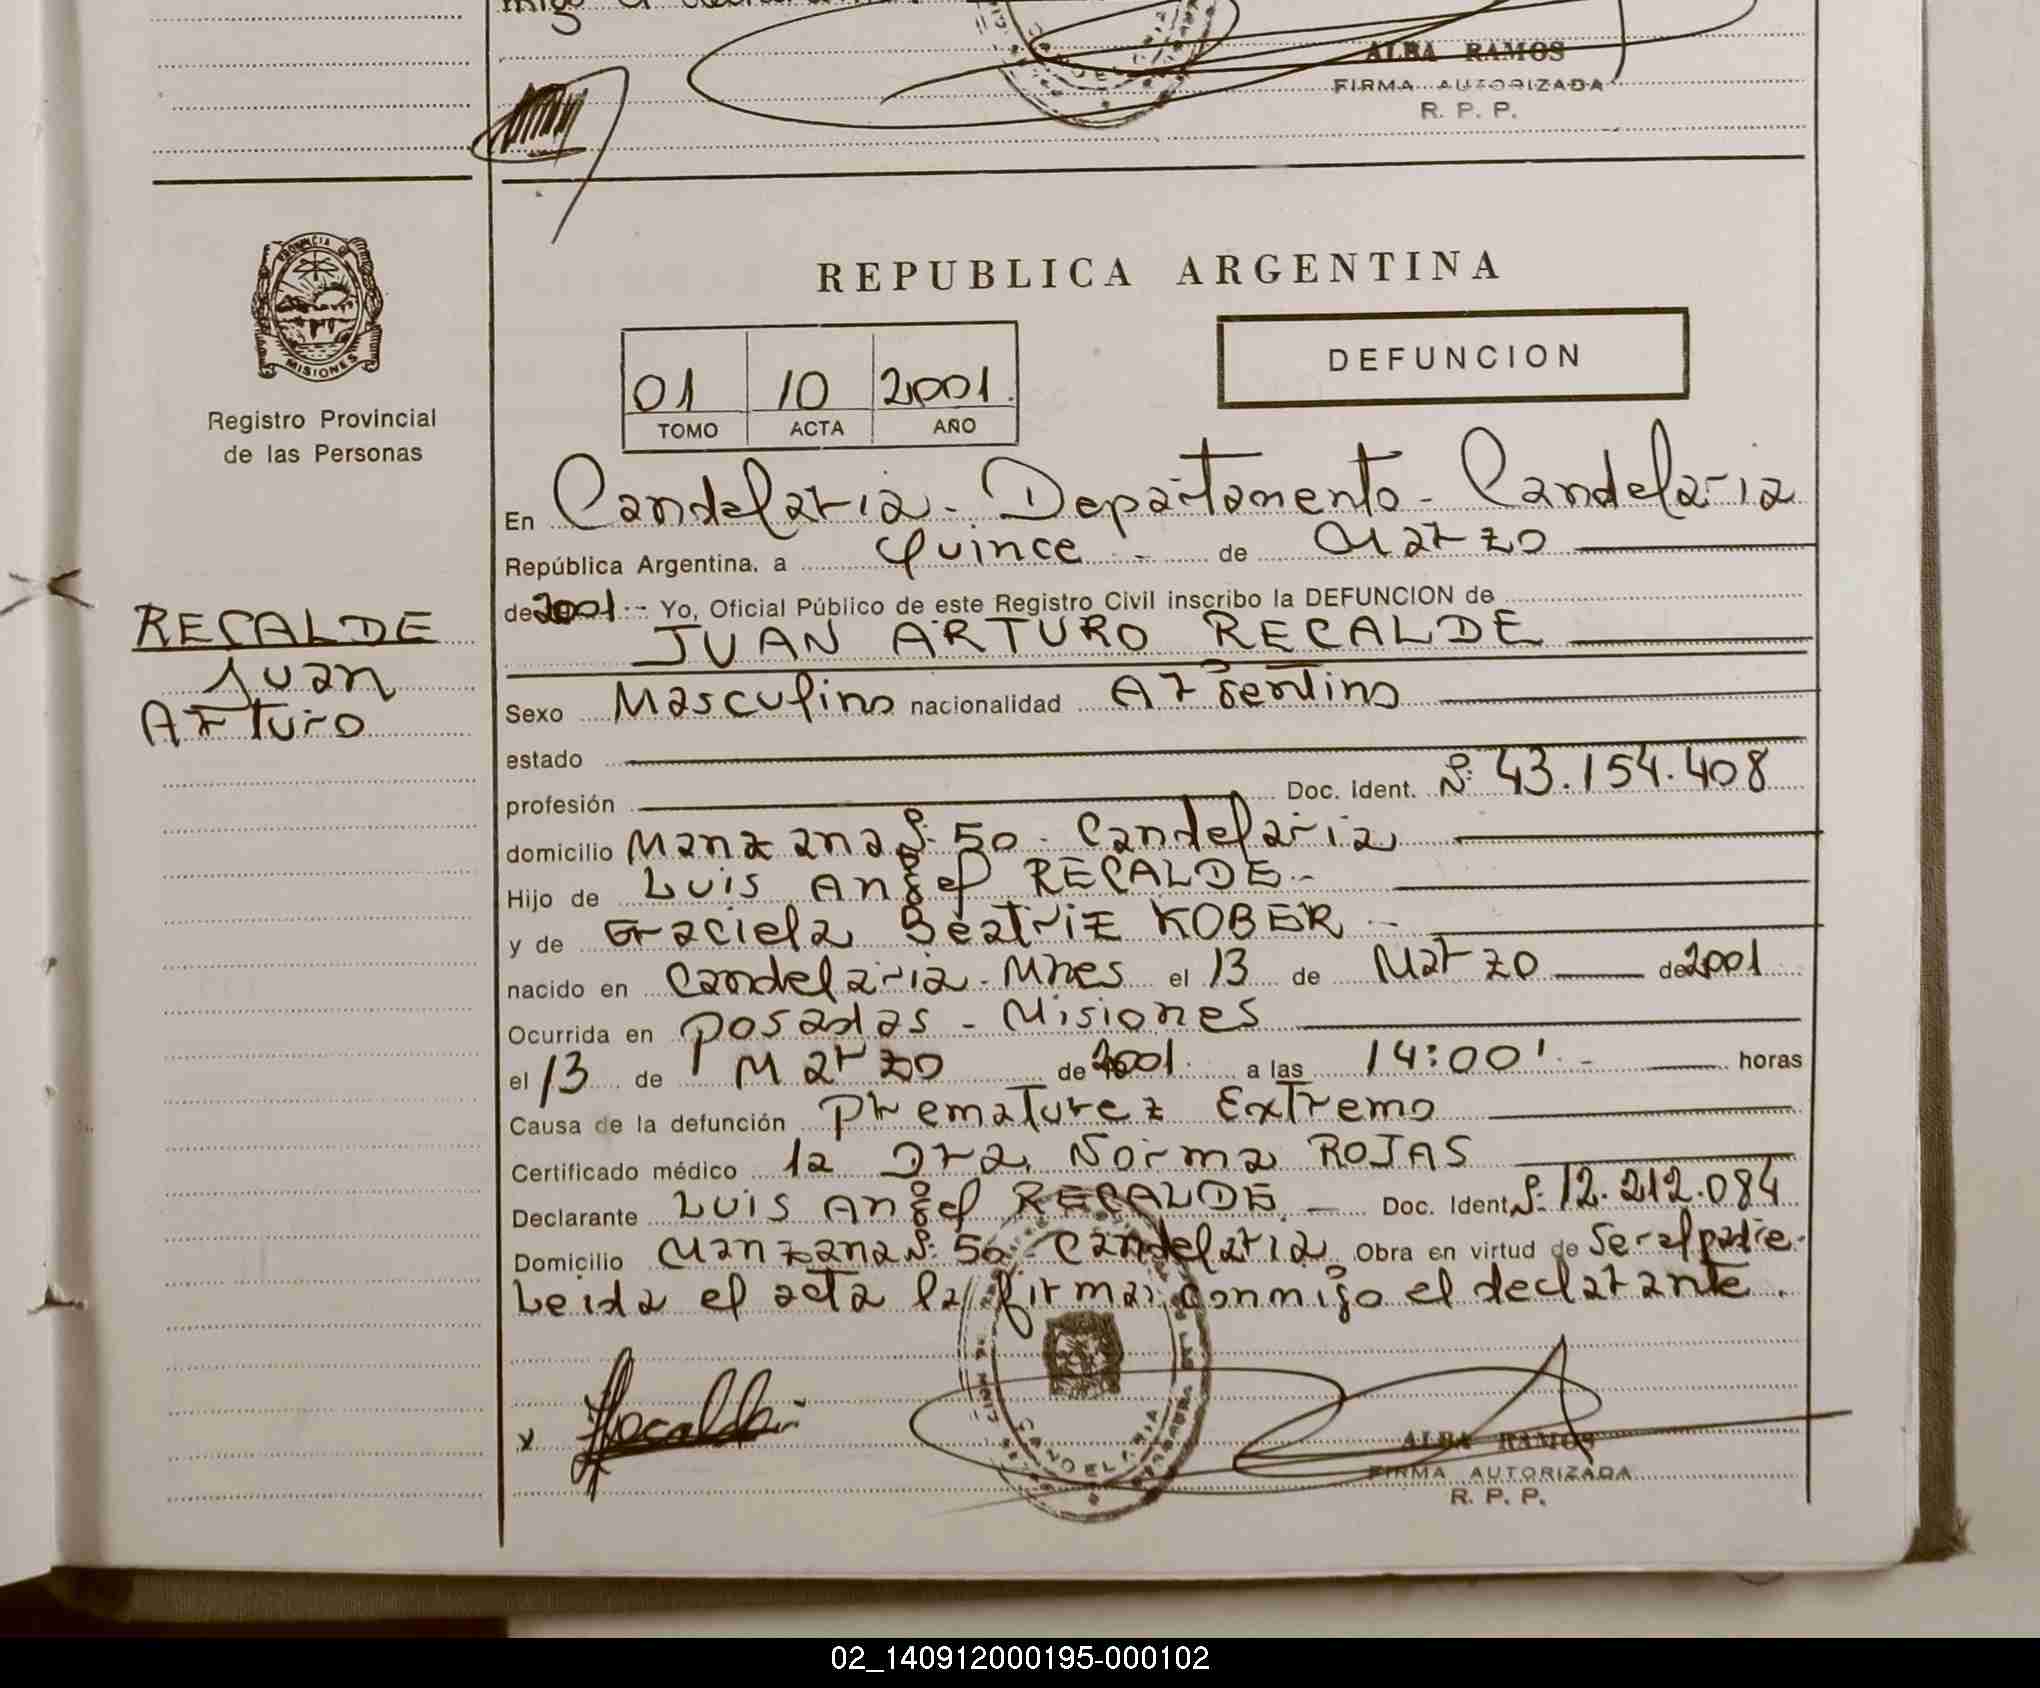 ALBA RAMOS
FIRMA AUTORIZADA
R. P. P.
PROVINCIA DE
MISIONES
Registro Provincial
de las Personas
REPUBLICA ARGENTINA
01 10 2001
TOMO ACTA AÑO
DEFUNCION
En Candelaria - Departamento - Candelaria
República Argentina, a Quince - de Marzo
de 2001 - Yo, Oficial Público de este Registro Civil inscribo la DEFUNCION de
JUAN ARTURO RECALDE
RECALDE
Juan
Arturo
Sexo Masculino nacionalidad Argentino
estado
profesión Doc. Ident. Nº 43.154.408
domicilio Manzana Nº 50 - Candelaria
Hijo de Luis Angel RECALDE -
y de Graciela Beatriz KOBER -
nacido en Candelaria - Mnes el 13 de Marzo de 2001
Ocurrida en Posadas - Misiones
el 13 de Marzo de 2001 a las 14:00' - horas
Causa de la defunción Prematurez Extremo
Certificado médico la Dra. Norma ROJAS
Declarante Luis Angel RECALDE. - Doc. Ident Nº 12.212.084
Domicilio Manzana Nº 50 - Candelaria Obra en virtud de Ser el padre.
Leida el acta la firma conmigo el declarante.
CANDELARIA
ALBA RAMOS
FIRMA AUTORIZADA
R. P. P.
02_140912000195-000102